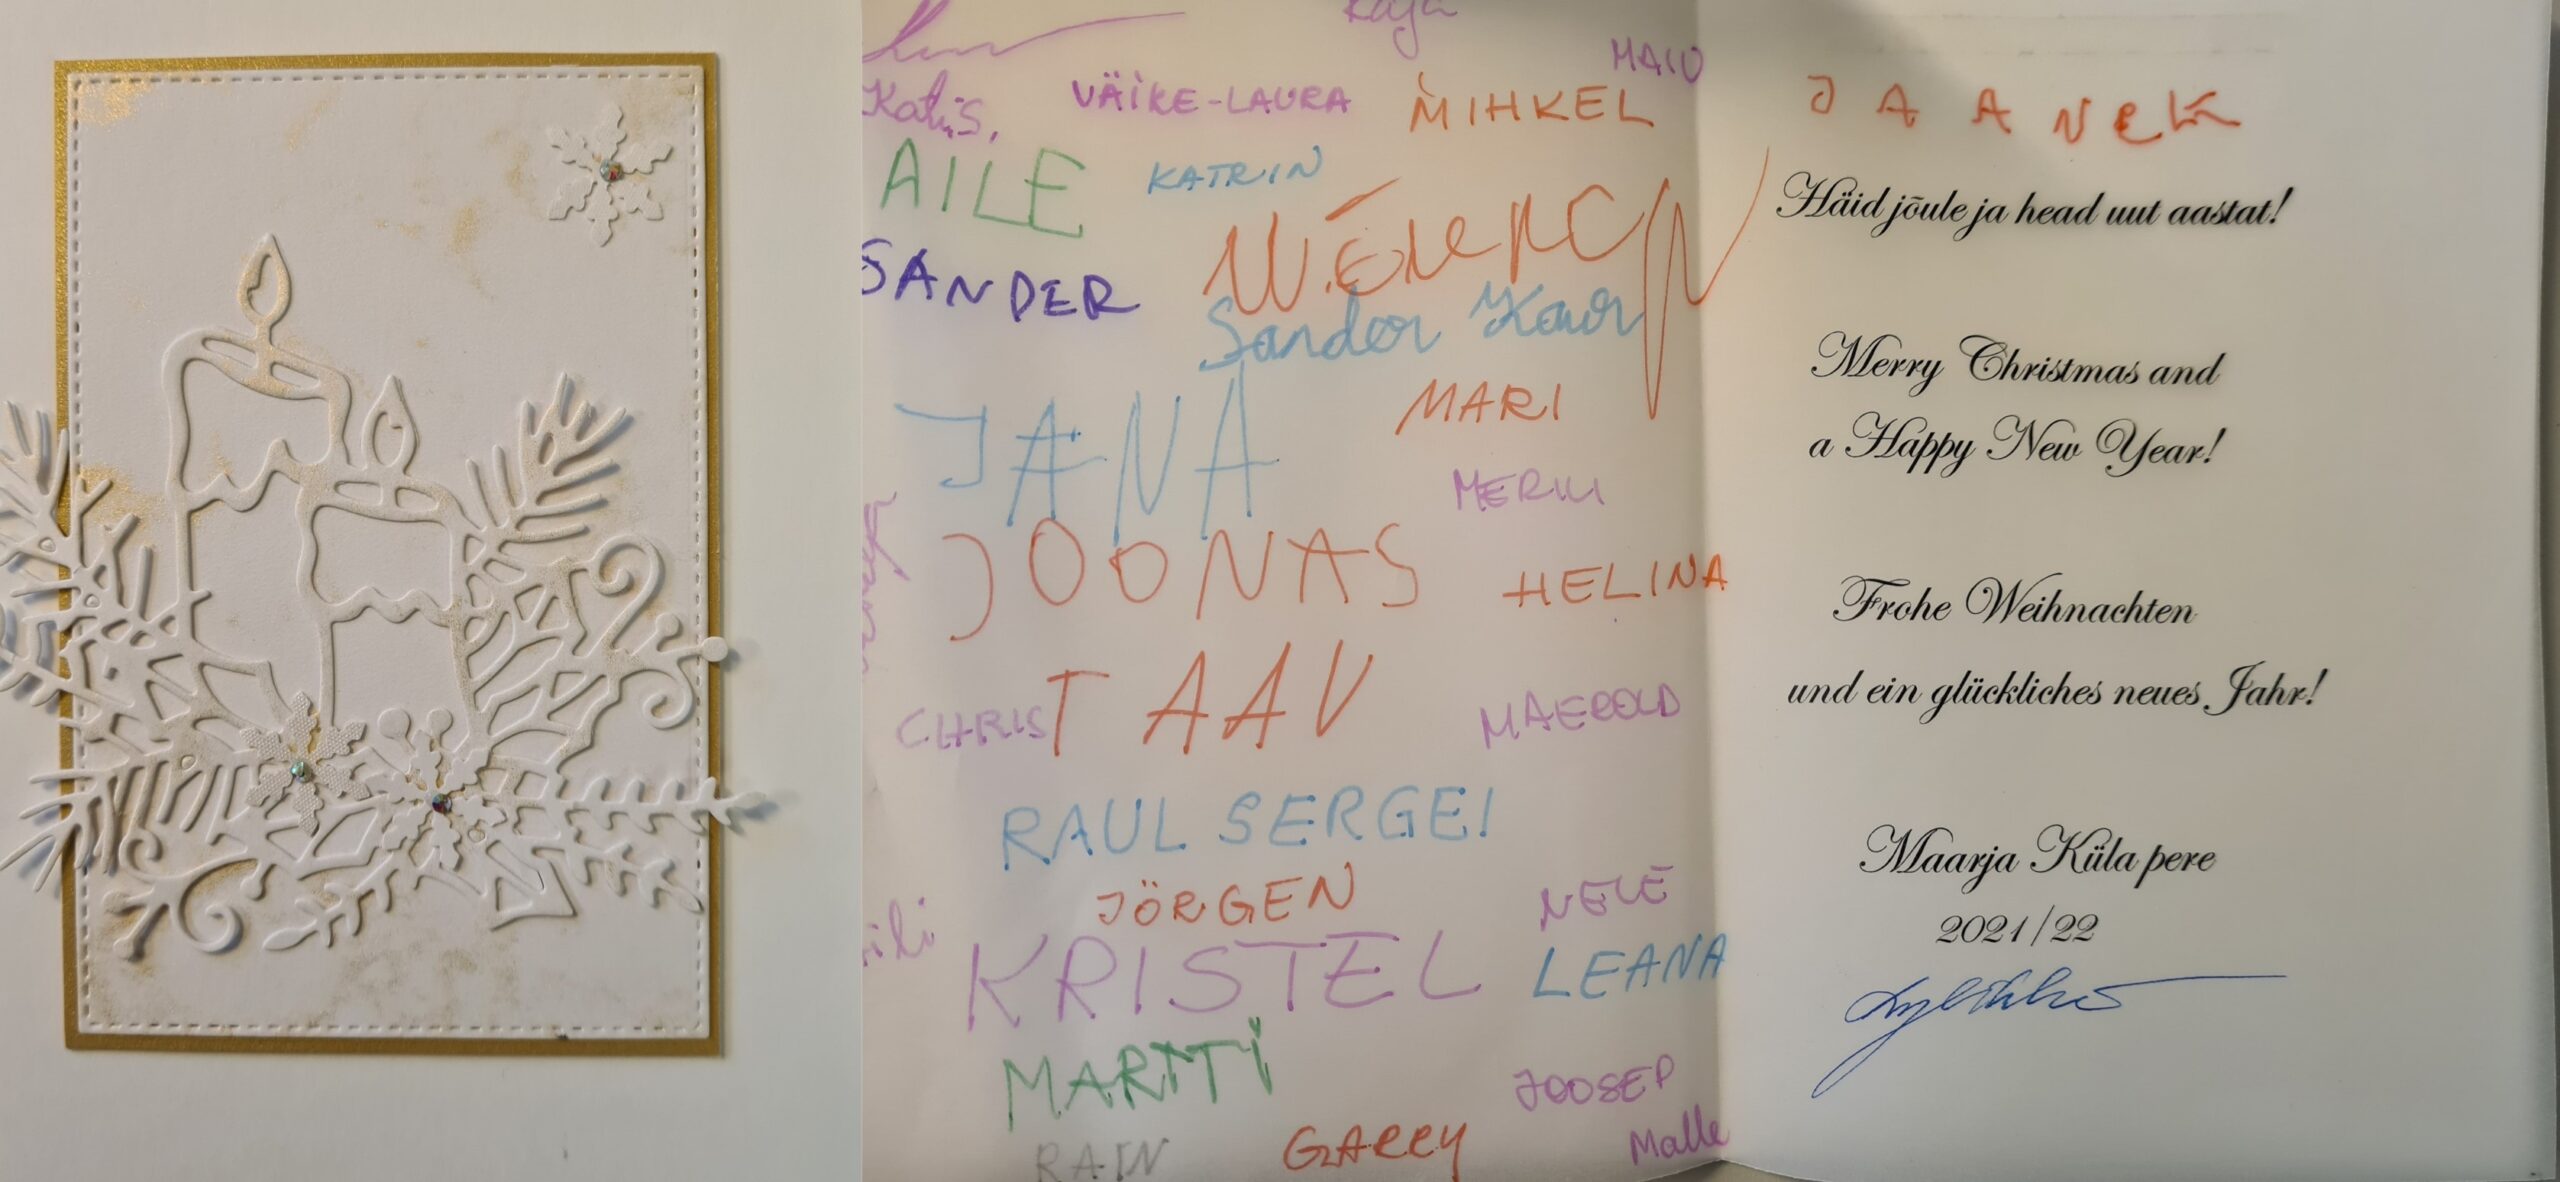 Kaja
MAIU
Katis.
VÄIKE-LAURA
MIHKEL
AILE
KATRIN
SANDER
Sander Kaur
JANA
MARI
MERILI
JOONAS
HELINA
CHRIS
TAAV
MAEROLD
RAUL SERGEI
JÖRGEN
NELE
KRISTEL
LEANA
MARTTI
JOOSEP
RAIN
GARRY
Malle
JAANEK
Häid jõule ja head uut aastat!
Merry Christmas and
a Happy New Year!
Frohe Weihnachten
und ein glückliches neues Jahr!
Maarja Küla pere
2021/22